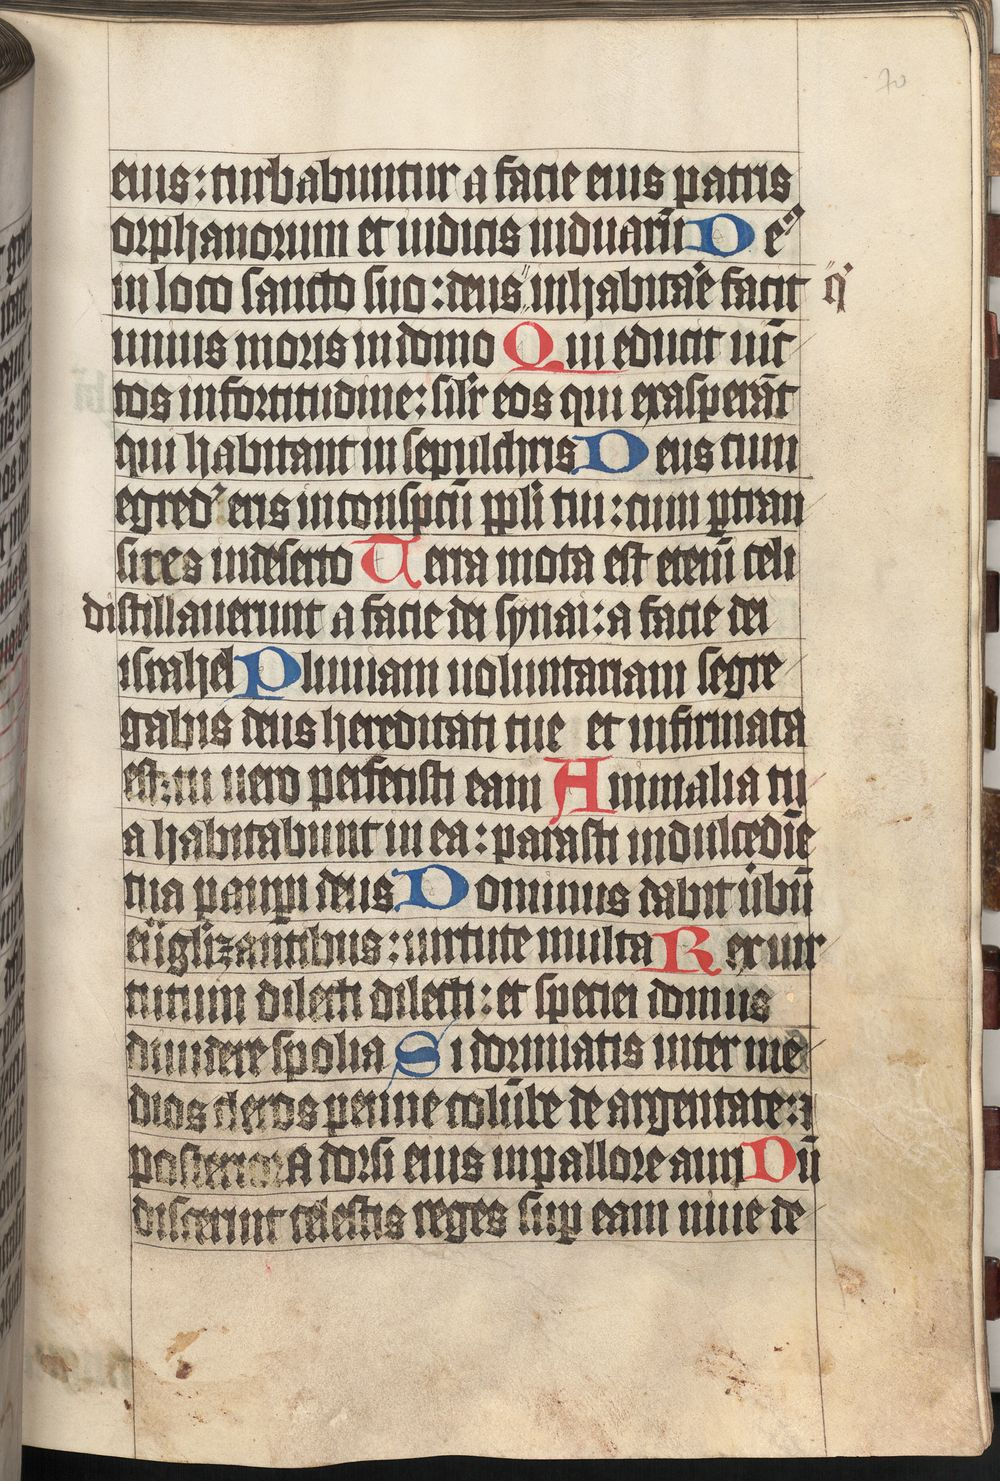 70
eius: turbabuntur a facie eius patris
orphanorum et iudicis uiduarū De⁹
in loco sancto suo: deus inhabitare facit q̄
unius moris in domo Qui educit uīc
tos in fortitudine: sil'r eos qui exasperāt
qui habitant in sepulchris Deus cum
egred' eris in conspectū ppl'i tui: cum ptran
sires in deserto Terra mota est etenī celi
distillauerunt a facie dei synai: a facie dei
israhel Pluuiam uoluntariam segre
gabis deus hereditati tue et infirmata
est: tu uero perfecisti eam Animalia tu
a habitabunt in ea: parasti in dulcedīe
tua paupi deus Dominus dabit ūbū
eūglizantibus: uirtute multa Rex uir
tutum dilecti dilecti: et speciei domus
diuidere spolia Si dormiatis inter me
dios cleros penne colūbe de argentate: ⁊
posteriora dorsi eius in pallore auri Dū
discernit celestis reges sup eam niue de